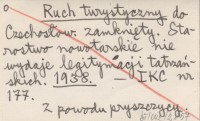 Ruch turystyczny do
Czechosłow. zamknięty. Sta-
rostwo nowotarskie nie
wydaje legitymacji tatrzań-
skich. 1938. — IKC nr
177.
Z powodu pryszczycy.